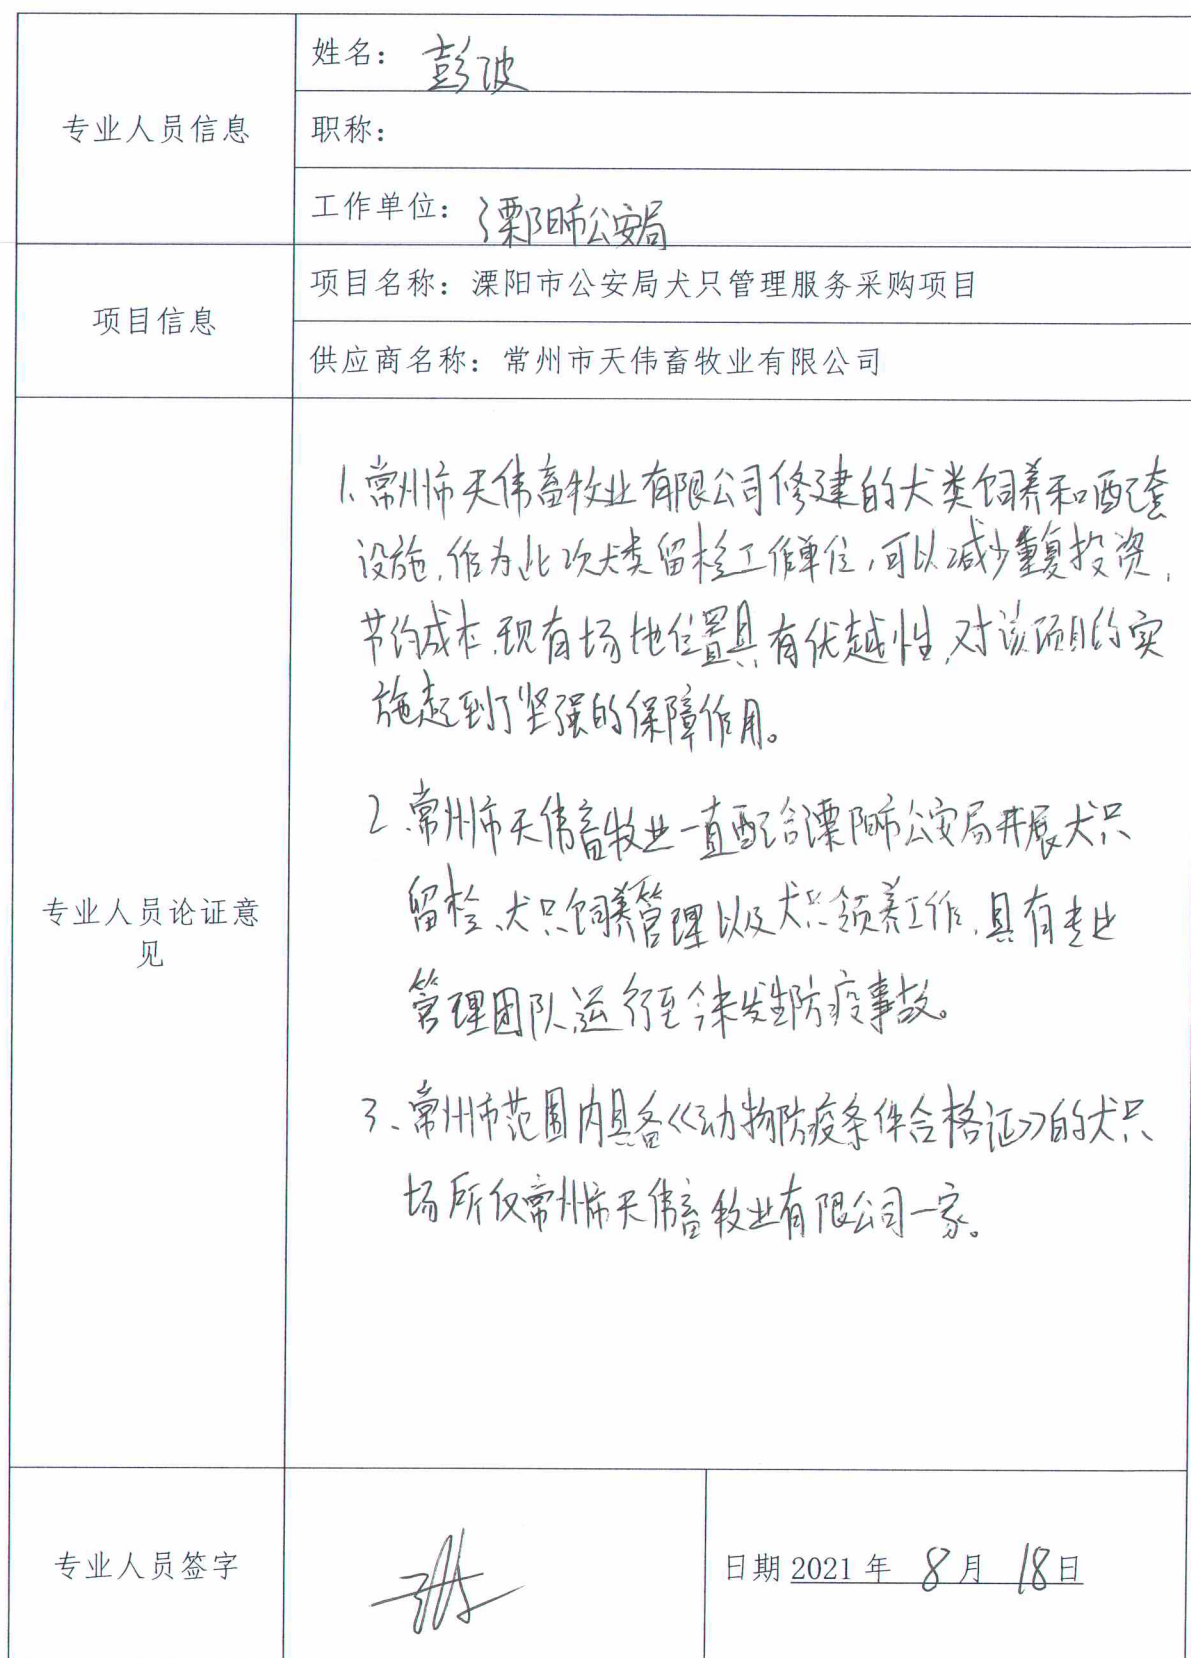 专业人员信息
姓名：彭波
职称：
工作单位：溧阳市公安局
项目信息
项目名称：溧阳市公安局犬只管理服务采购项目
供应商名称：常州市天伟畜牧业有限公司
专业人员论证意
见
1.常州市天伟畜牧业有限公司修建的犬类饲养和配套
设施，作为此次犬类留检工作单位，可以减少重复投资，
节约成本，现有场地位置具有优越性，对该项目的实
施起到了坚强的保障作用。
2.常州市天伟畜牧业一直配合溧阳市公安局开展犬只
留检、犬只饲养管理以及犬只领养工作，具有专业
管理团队，运行至今未发生防疫事故。
3、常州市范围内具备《动物防疫条件合格证》的犬只
场所仅常州市天伟畜牧业有限公司一家。
专业人员签字
日期 2021 年 8 月 18 日